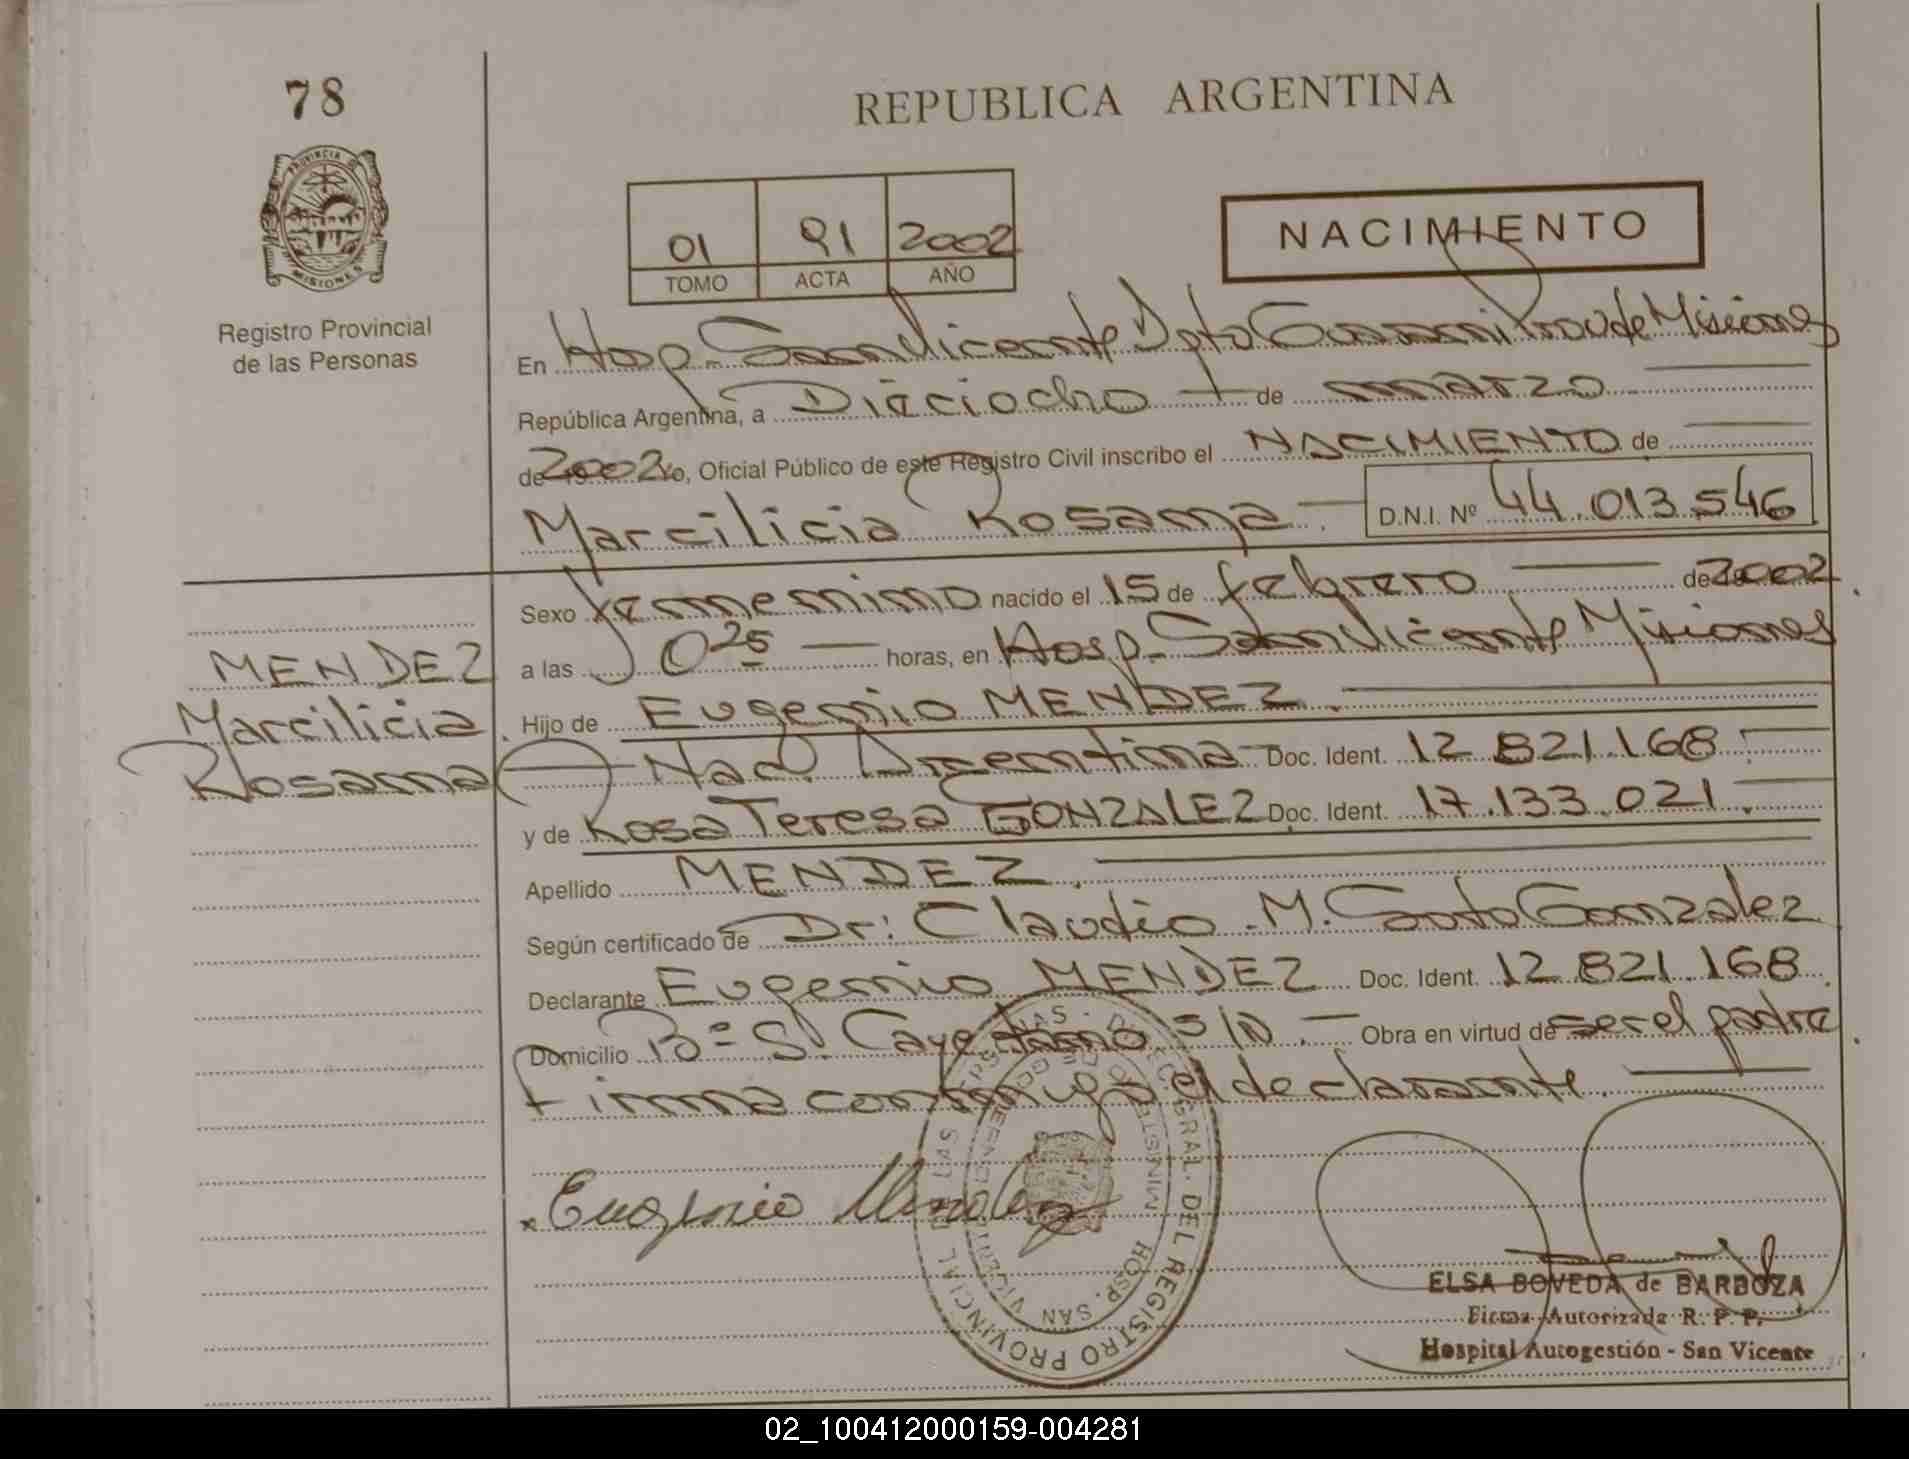 78
REPUBLICA ARGENTINA
PROVINCIA DE
MISIONES
Registro Provincial
de las Personas
01 91 2002
TOMO ACTA AÑO
NACIMIENTO
En Hosp. San Vicente Dpto Guarani Prov de Misiones
República Argentina, a Dieciocho de marzo
de 2002 yo, Oficial Público de este Registro Civil inscribo el NACIMIENTO de
Marcilicia Rosana D.N.I. Nº 44.013.546
Sexo femenino nacido el 15 de febrero de 2002
a las 0 25 horas, en Hosp. San Vicente Misiones
MENDEZ
Marcilicia
Rosana
Hijo de Eugenio MENDEZ.
Nac. Argentina Doc. Ident. 12.821.168.
y de Rosa Teresa GONZALEZ Doc. Ident. 17.133.021.
Apellido MENDEZ.
Según certificado de Dr: Claudio M. Soto Gonzalez
Declarante Eugenio MENDEZ Doc. Ident. 12.821.168
Domicilio Bº Sn. Cayetano S/N. Obra en virtud de ser el padre
Firma conmigo el declarante.
Eugenio Mendez
GRAL. DEL REGISTRO PROVINCIAL DE LAS PERSONAS
HOSP. SAN VICENTE
ELSA BOVEDA de BARBOZA
Firma Autorizada R. P. P.
Hospital Autogestión - San Vicente
02_100412000159-004281